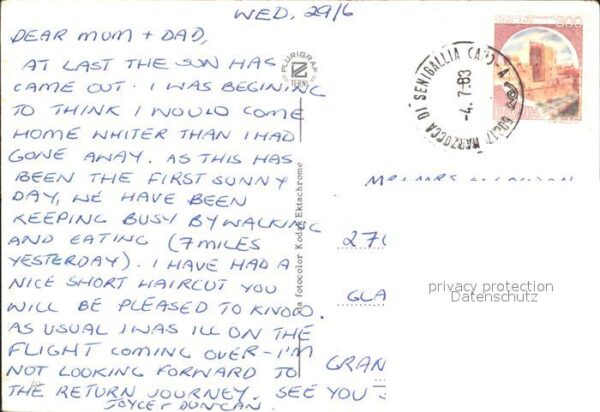 WED. 29/6
DEAR MUM + DAD,
AT LAST THE SUN HAS
CAME OUT. I WAS BEGINING
TO THINK I WOULD COME
HOME WHITER THAN I HAD
GONE AWAY. AS THIS HAS
BEEN THE FIRST SUNNY
DAY, WE HAVE BEEN
KEEPING BUSY BY WALKING
AND EATING (7 MILES
YESTERDAY). I HAVE HAD A
NICE SHORT HAIRCUT YOU
WILL BE PLEASED TO KNOW.
AS USUAL I WAS ILL ON THE
FLIGHT COMING OVER - I'M
NOT LOOKING FORWARD TO
THE RETURN JOURNEY. SEE YOU S
JOYCE + DUNCAN.
PLURIGRAF
TERNI
la fotocolor Kodak Ektachrome
300
60017 MARZOCCA DI SENIGALLIA
-4.7.83
270
GLA
GRAN
privacy protection
Datenschutz